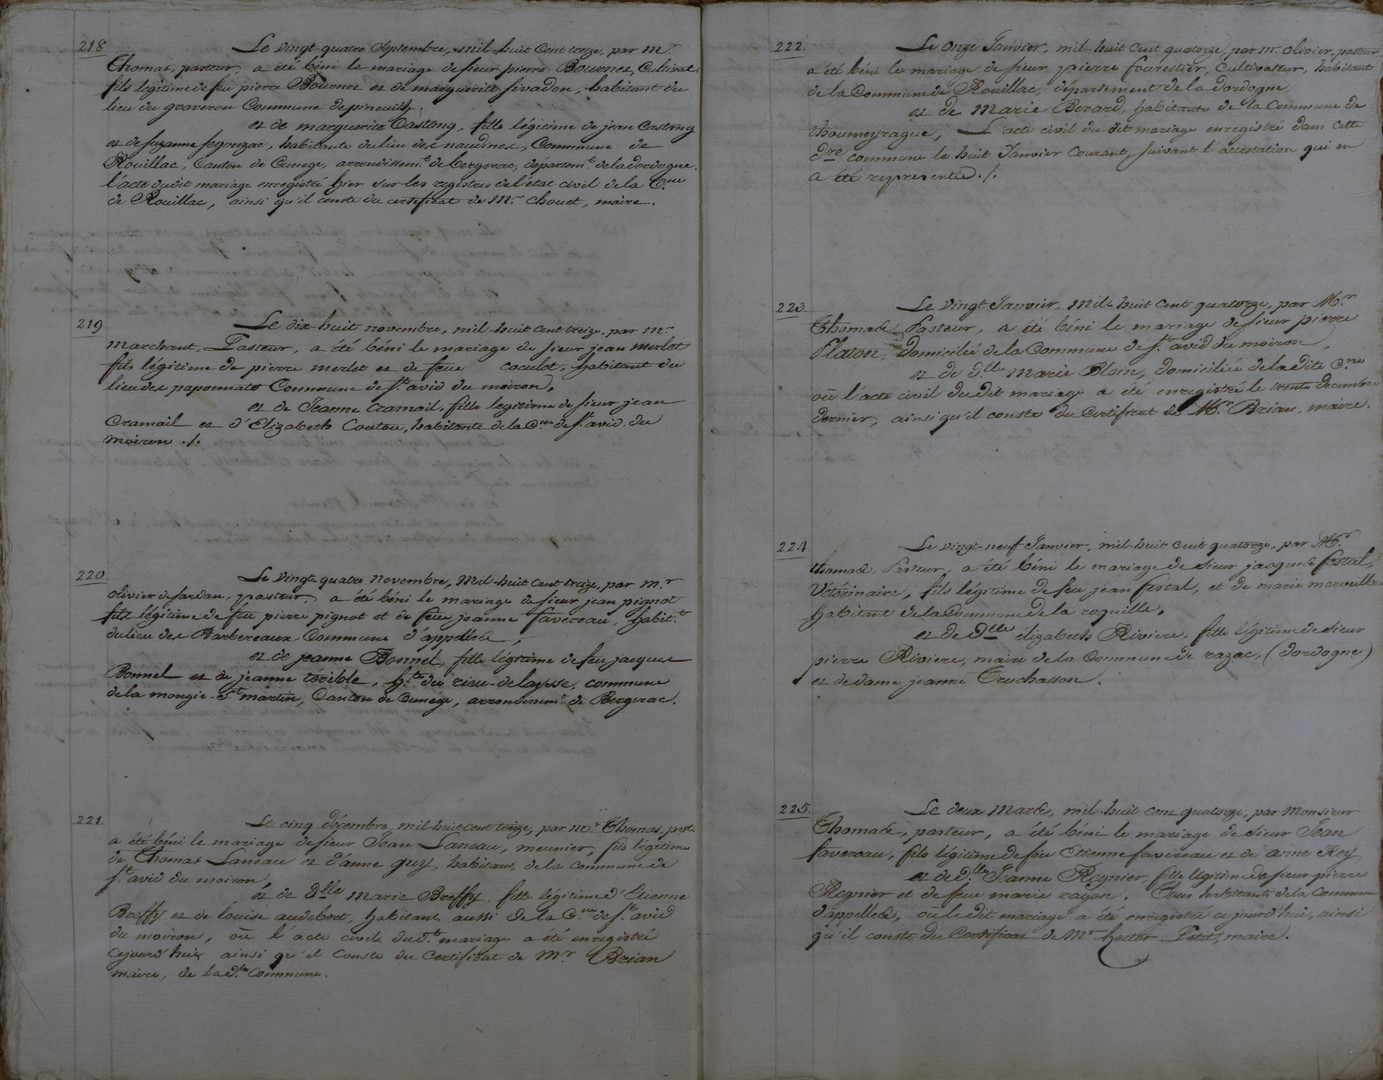 218
Le vingt quatre Septembre, mil huit Cent treize, par mr
Thomas, pasteur, a été béni le mariage de sieur pierre Bournez, Cultivatr
fils légitime de feu pierre Bournez et de marguerite sivadon, habitant du
lieu du graveron Commune de pineuilh.
et de marguerite Castang, fille légitime de jean Castang
et de suzanne segonzac, habitante du lieu des naudines, Commune de
Rouillac, Canton de Cumege, arrondissemt de bergerac, départemt de la dordogne.
l'acte du dit mariage enregistré hier sur les registres de l'état civil de la Cne
de Rouillac, ainsi qu'il conste du certificat de Mr chouet, maire.
219
Le dix huit novembre, mil huit cent treize, par mr
marchant, Pasteur, a été béni le mariage de sieur jean merlot
fils légitime de pierre merlot et de feue caculot, habitant du
lieu des paponnats Commune de St avid du moiron,
et de Jeanne cramail, fille légitime de sieur jean
Cramail et d'Elizabeth Coutou, habitante de la Cne de St avid du
moiron ./.
220
Le Vingt quatre novembre, Mil huit Cent treize, par mr
olivier de sardan, pasteur, a été béni le mariage de sieur jean pignot
fils légitime de feu pierre pignot et de feue jeanne favereau, habitt
du lieu des Barbereaux Commune d'appelles,
et de jeanne Bonnel, fille légitime de feu jacques
Bonnel et de jeanne terrible, hte du rieu-de-laysse, commune
de la mongie-St martin, Canton de Cumege, arrondissemt de Bergerac.
221
Le cinq décembre, mil-huit cent treize, par mr Thomas, pastr
a été béni le mariage de sieur Jean Laneau, meunier, fils légitime
de Thomas Laneau et d'anne guy, habitant de la commune de
St avid du moiron
et de Dlle Marie Breffy, fille légitime d'Etienne
Breffy et de louise audebert, habitant aussi de la Cne de St avid
du moiron, où l'acte civile du dt mariage a été enregistré
cejourd'hui ainsi qu'il conste du Certificat de Mr Brian
maire, de la dte Commune.
222
Le onze Janvier, mil-huit cent quatorze, par mr olivier, pasteur
a été béni le mariage de sieur pierre fourestier, Cultivateur, habitant
de la Commune de Rouillac, département de la dordogne
et de Marie Berard, habitante de la Commune de
Thoumeyrague, L'acte civil du dit mariage enregistré dans cette
dre commune le huit Janvier Courant, suivant l'attestation qui en
a été représentée ./.
223.
Le Vingt Janvier, Mil-huit Cent quatorze, par Mr
Thomas, Pasteur, a été béni le mariage de sieur pierre
Platon, domicilié de la Commune de St avid du moiron,
et de Dlle marie Bloin, domiciliée de la dite Cne
où l'acte civil du dit mariage a été enregistré le trente decembre
dernier, ainsi qu'il conste du Certificat de Mr Brian, maire.
224
Le vingt-neuf Janvier, mil-huit cent quatorze, par Mr
thomas, Pasteur, a été béni le mariage de sieur jacques festal,
Vétérinaire, fils légitime de feu jean festal, et de marie
habitant de la Commune de la roquille,
et de Dlle elizabeth Riviere, fille légitime de sieur
pierre Riviere, maire de la Commune de razac, (dordogne)
et de dame jeanne Truchasson.
225.
Le deux Mars, mil-huit cent quatorze, par Monsieur
Thomas, pasteur, a été béni le mariage de sieur Jean
favereau, fils légitime de feu Etienne favereau et de anne Rey
et de Dlle Jeanne Regnier, fille légitime de sieur pierre
Regnier et de feue marie ragot. Tous habitants de la Commune
d'appelles, où le dit mariage a été enregistré ce jourd'hui, ainsi
qu'il conste du Certificat de Mr hector Petit, maire.